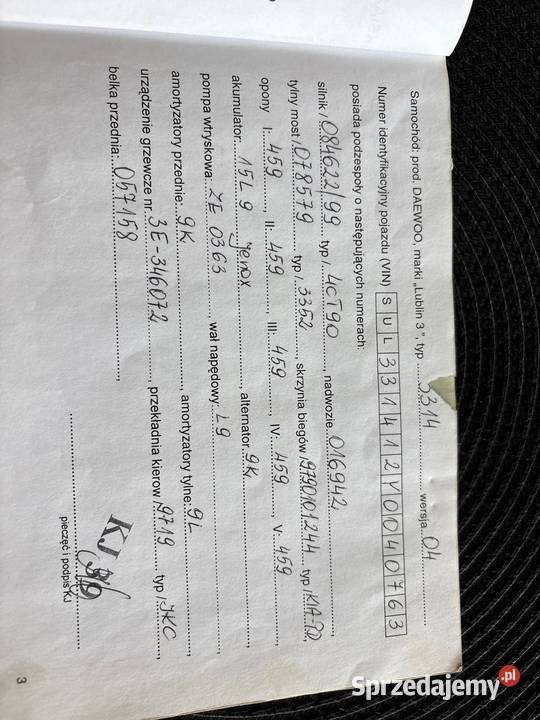 Samochód: prod. DAEWOO, marki „Lublin 3”, typ 3314 wersja 04
Numer identyfikacyjny pojazdu (VIN) S U L 3 3 1 4 1 2 Y 0 0 4 0 7 6 3
posiada podzespoły o następujących numerach:
silnik 084622/99 typ 4CT90, nadwozie 016942,
tylny most 078579 typ 3352, skrzynia biegów 979010.1244 typ KIA-TD,
opony I: 459, II: 459, III: 459, IV: 459, V: 459
akumulator 15L 9 jenox, alternator 9K,
pompa wtryskowa: ZE 0363, wał napędowy: L9
amortyzatory przednie: 9K, amortyzatory tylne: 9L,
urządzenie grzewcze nr 3E-346072, przekładnia kierow 9719 typ JKC,
belka przednia: 057158,
KJ 36
pieczęć i podpis KJ
3
Sprzedajemy.pl